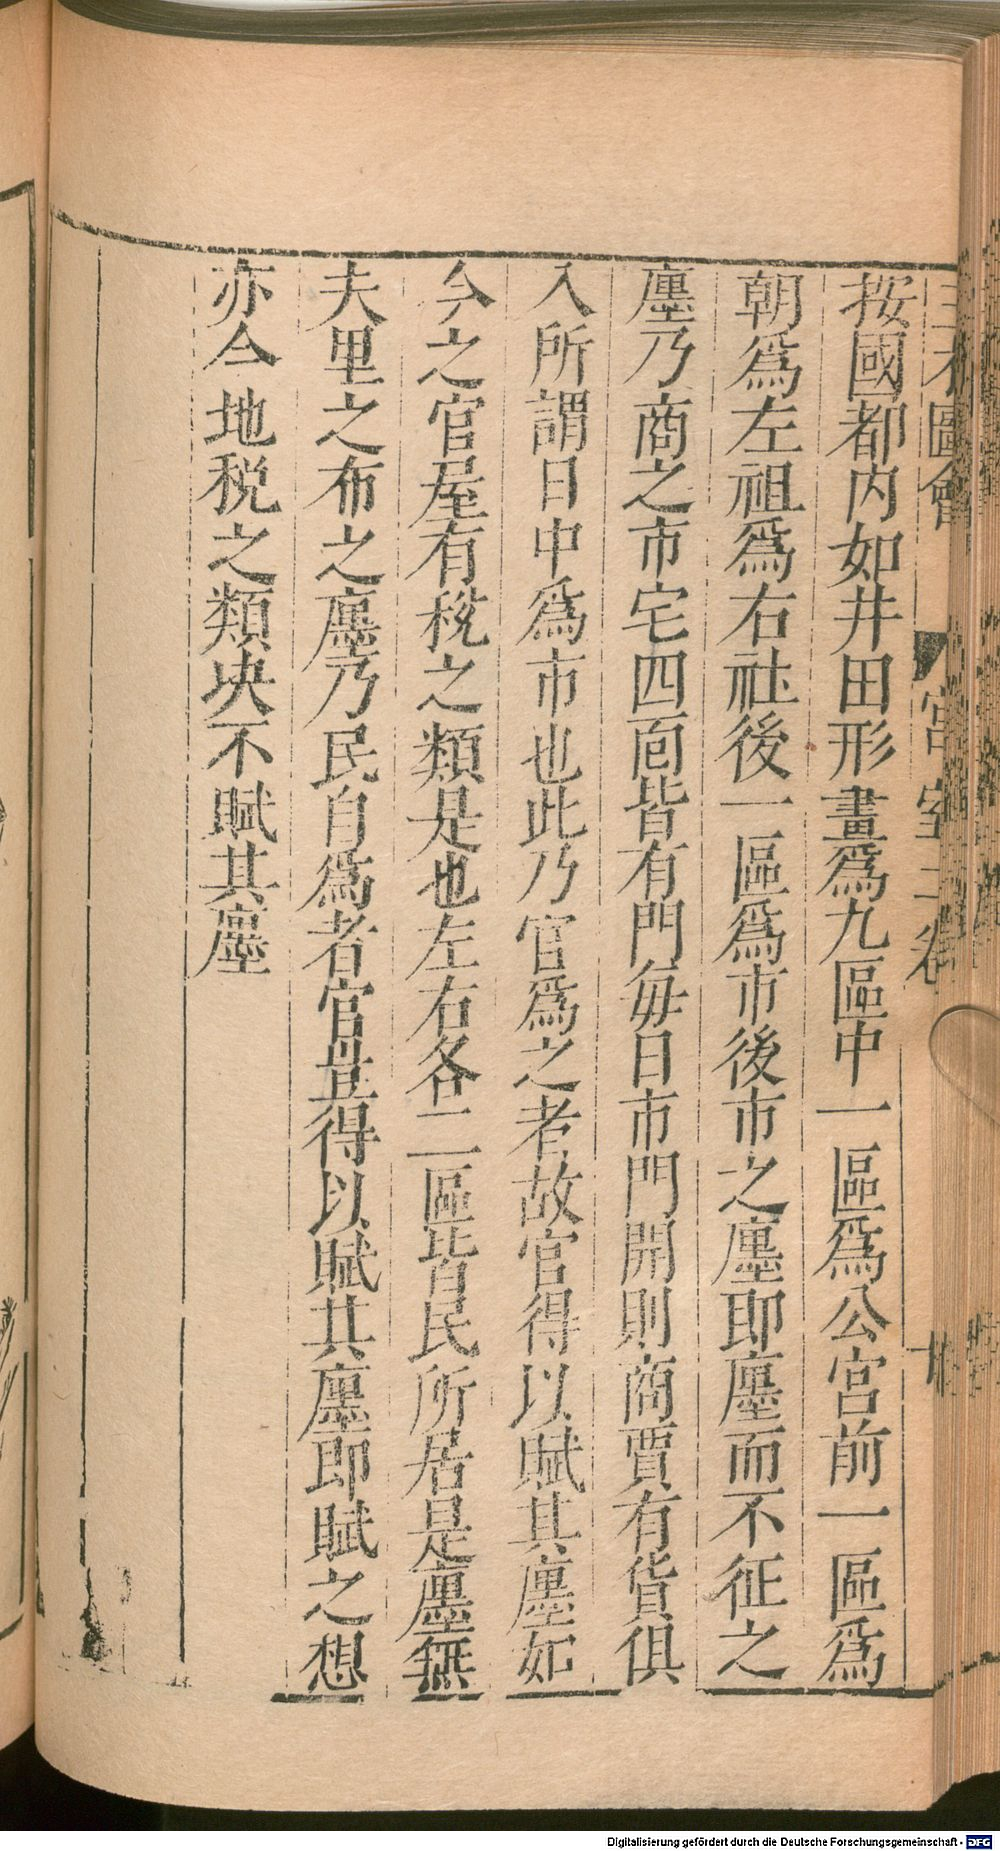 三才圖會 宮室二卷
按國都內如井田形畫為九區中一區為公宮前一區為
朝為左祖為右社後一區為市後市之廛即廛而不征之
廛乃商之市宅四面皆有門每日市門開則商賈有貨俱
入所謂日中為市也此乃官為之者故官得以賦其廛如
今之官屋有稅之類是也左右各二區皆民所居是廛無
夫里之布之廛乃民自為者官豈得以賦其廛即賦之想
亦今地稅之類決不賦其廛
Digitalisierung gefördert durch die Deutsche Forschungsgemeinschaft - DFG